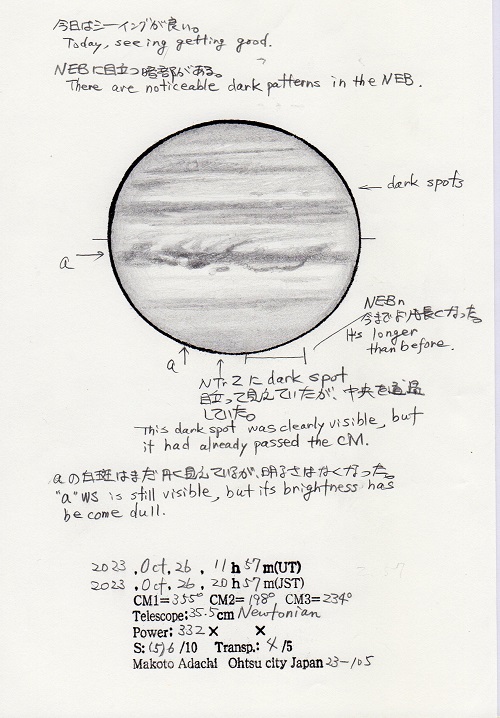 今日はシーイングが良い。
Today, seeing getting good.
NEBに目立つ暗部がある。
There are noticeable dark patterns in the NEB.
← dark spots
a →
NEBn
今までより長くなった。
It's longer
than before.
a
NTrZにdark spot
目立って見えていたが、中央を通過
していた。
This dark spot was clearly visible, but
it had already passed the CM.
aの白斑はまだ丸く見えているが、明るさはなくなった。
"a" WS is still visible, but its brightness has
become dull.
2023 . Oct. 26 . 11 h 57 m(UT)
2023 . Oct. 26 . 20 h 57 m(JST)
CM1= 355° CM2= 198° CM3= 234°
Telescope: 35.5 cm Newtonian
Power: 332 × ×
S: (5) 6 /10 Transp.: 4 /5
Makoto Adachi Ohtsu city Japan 23-105